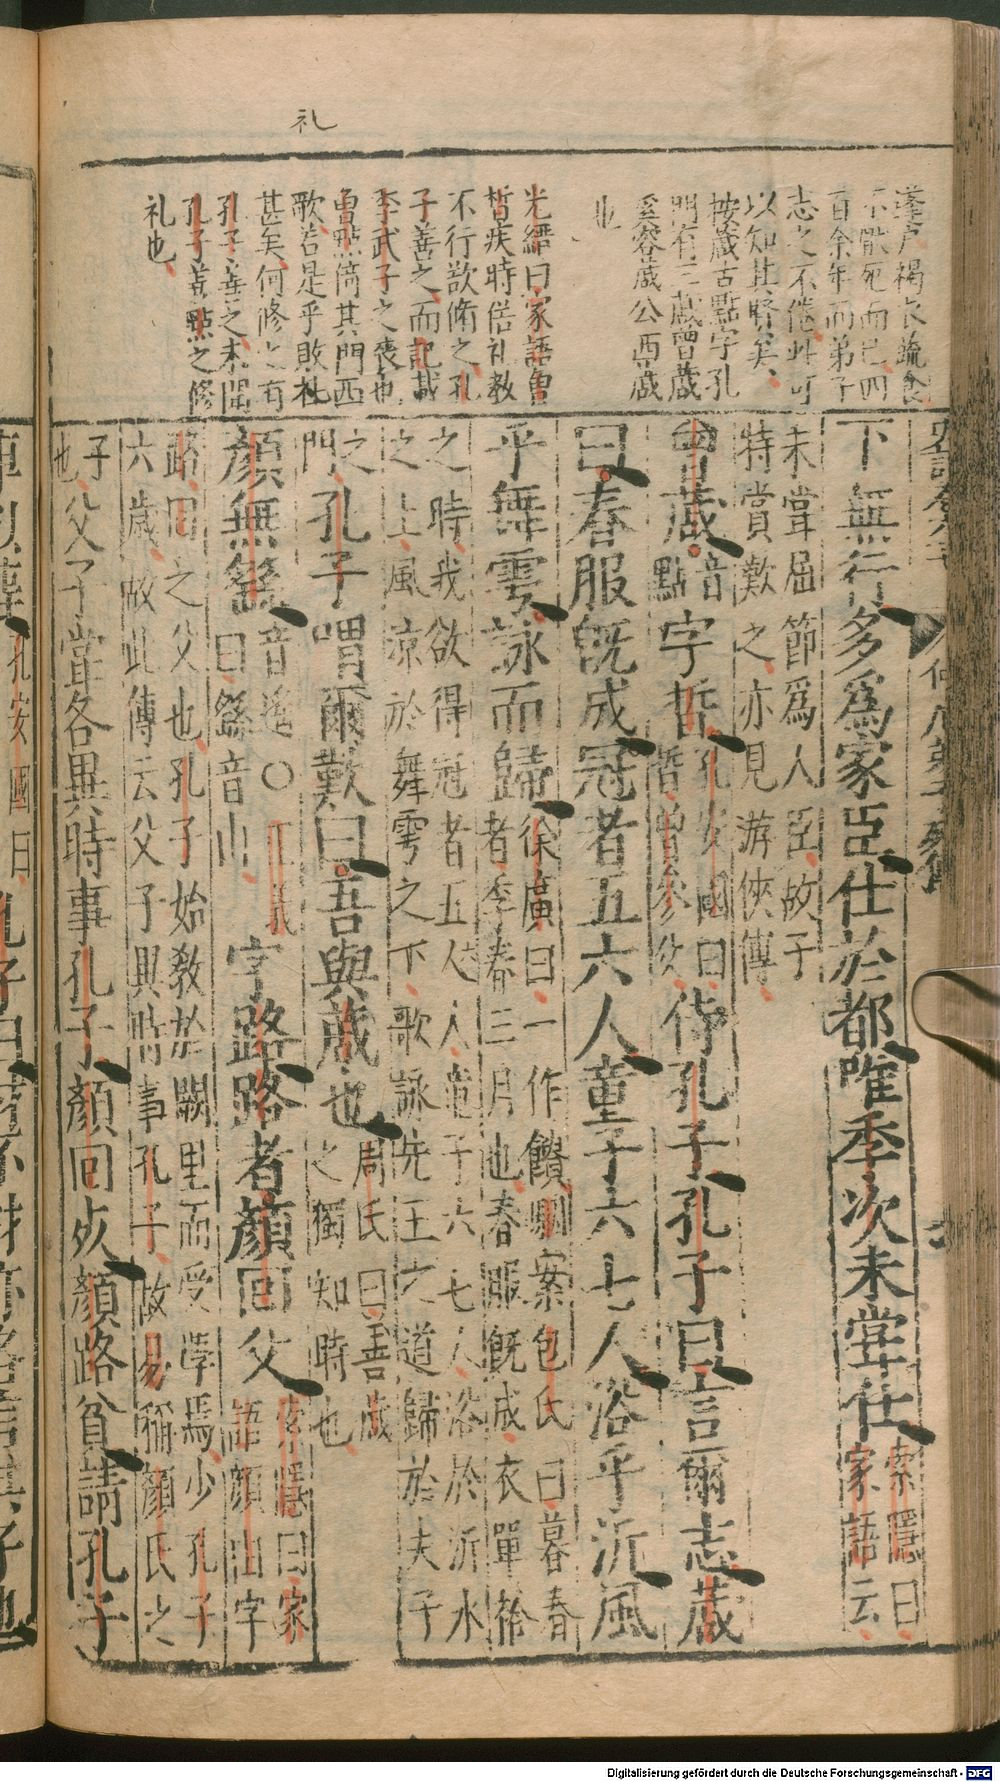 礼
蓬戶褐衣蔬食
不厭死而已四
百余年而弟子
志之不倦此可
以知其賢矣
按蒧古點字孔
門有三蒧曾蒧
奚容蒧公西蒧
也
光縉曰家語曾
皙疾時俗礼教
不行欲脩之孔
子善之而記載
季武子之喪也
曾點倚其門西
歌若是乎敗礼
甚矣何修之有
孔子善之未聞
孔子善點之修
礼也
下無行多爲家臣仕於都唯季次未嘗仕
索隱曰
家語云
未嘗屈節爲人臣故子
特賞歎之亦見游俠傳
曾蒧
音
點
字晳
孔安國曰
晳曾參父
侍孔子孔子曰言爾志蒧
曰春服既成冠者五六人童子六七人浴乎沂風
乎舞雩詠而歸
徐廣曰一作饋駰案包氏曰暮春
者季春三月也春服既成衣單袷
之時我欲得冠者五六人童子六七人浴於沂水
之上風凉於舞雩之下歌詠先王之道歸於夫子
之
門
孔子喟爾歎曰吾與蒧也
周氏曰善蒧
之獨知時也
顏無繇
音遙〇正義
曰繇音山
字路路者顏回父
索隱曰家
語顏由字
路回之父也孔子始教於闕里而受學焉少孔子
六歲故此傳云父子異時事孔子故易稱顏氏之
子
也
父子嘗各異時事孔子顏回死顏路貧請孔子
孔安國曰
孔子曰
Digitalisierung gefördert durch die Deutsche Forschungsgemeinschaft - DFG